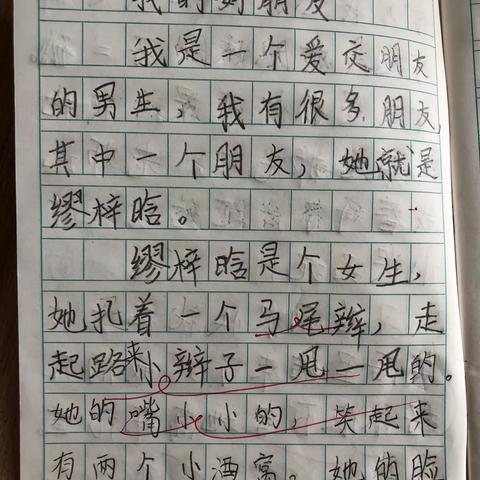 我的好朋友
我是一个爱交朋友
的男生，我有很多朋友，
其中一个朋友，她就是
缪梓晗。
缪梓晗是个女生，
她扎着一个马尾辫，走
起路来小辫子一甩一甩的。
她的嘴小小的，笑起来
有两个小酒窝。她的脸